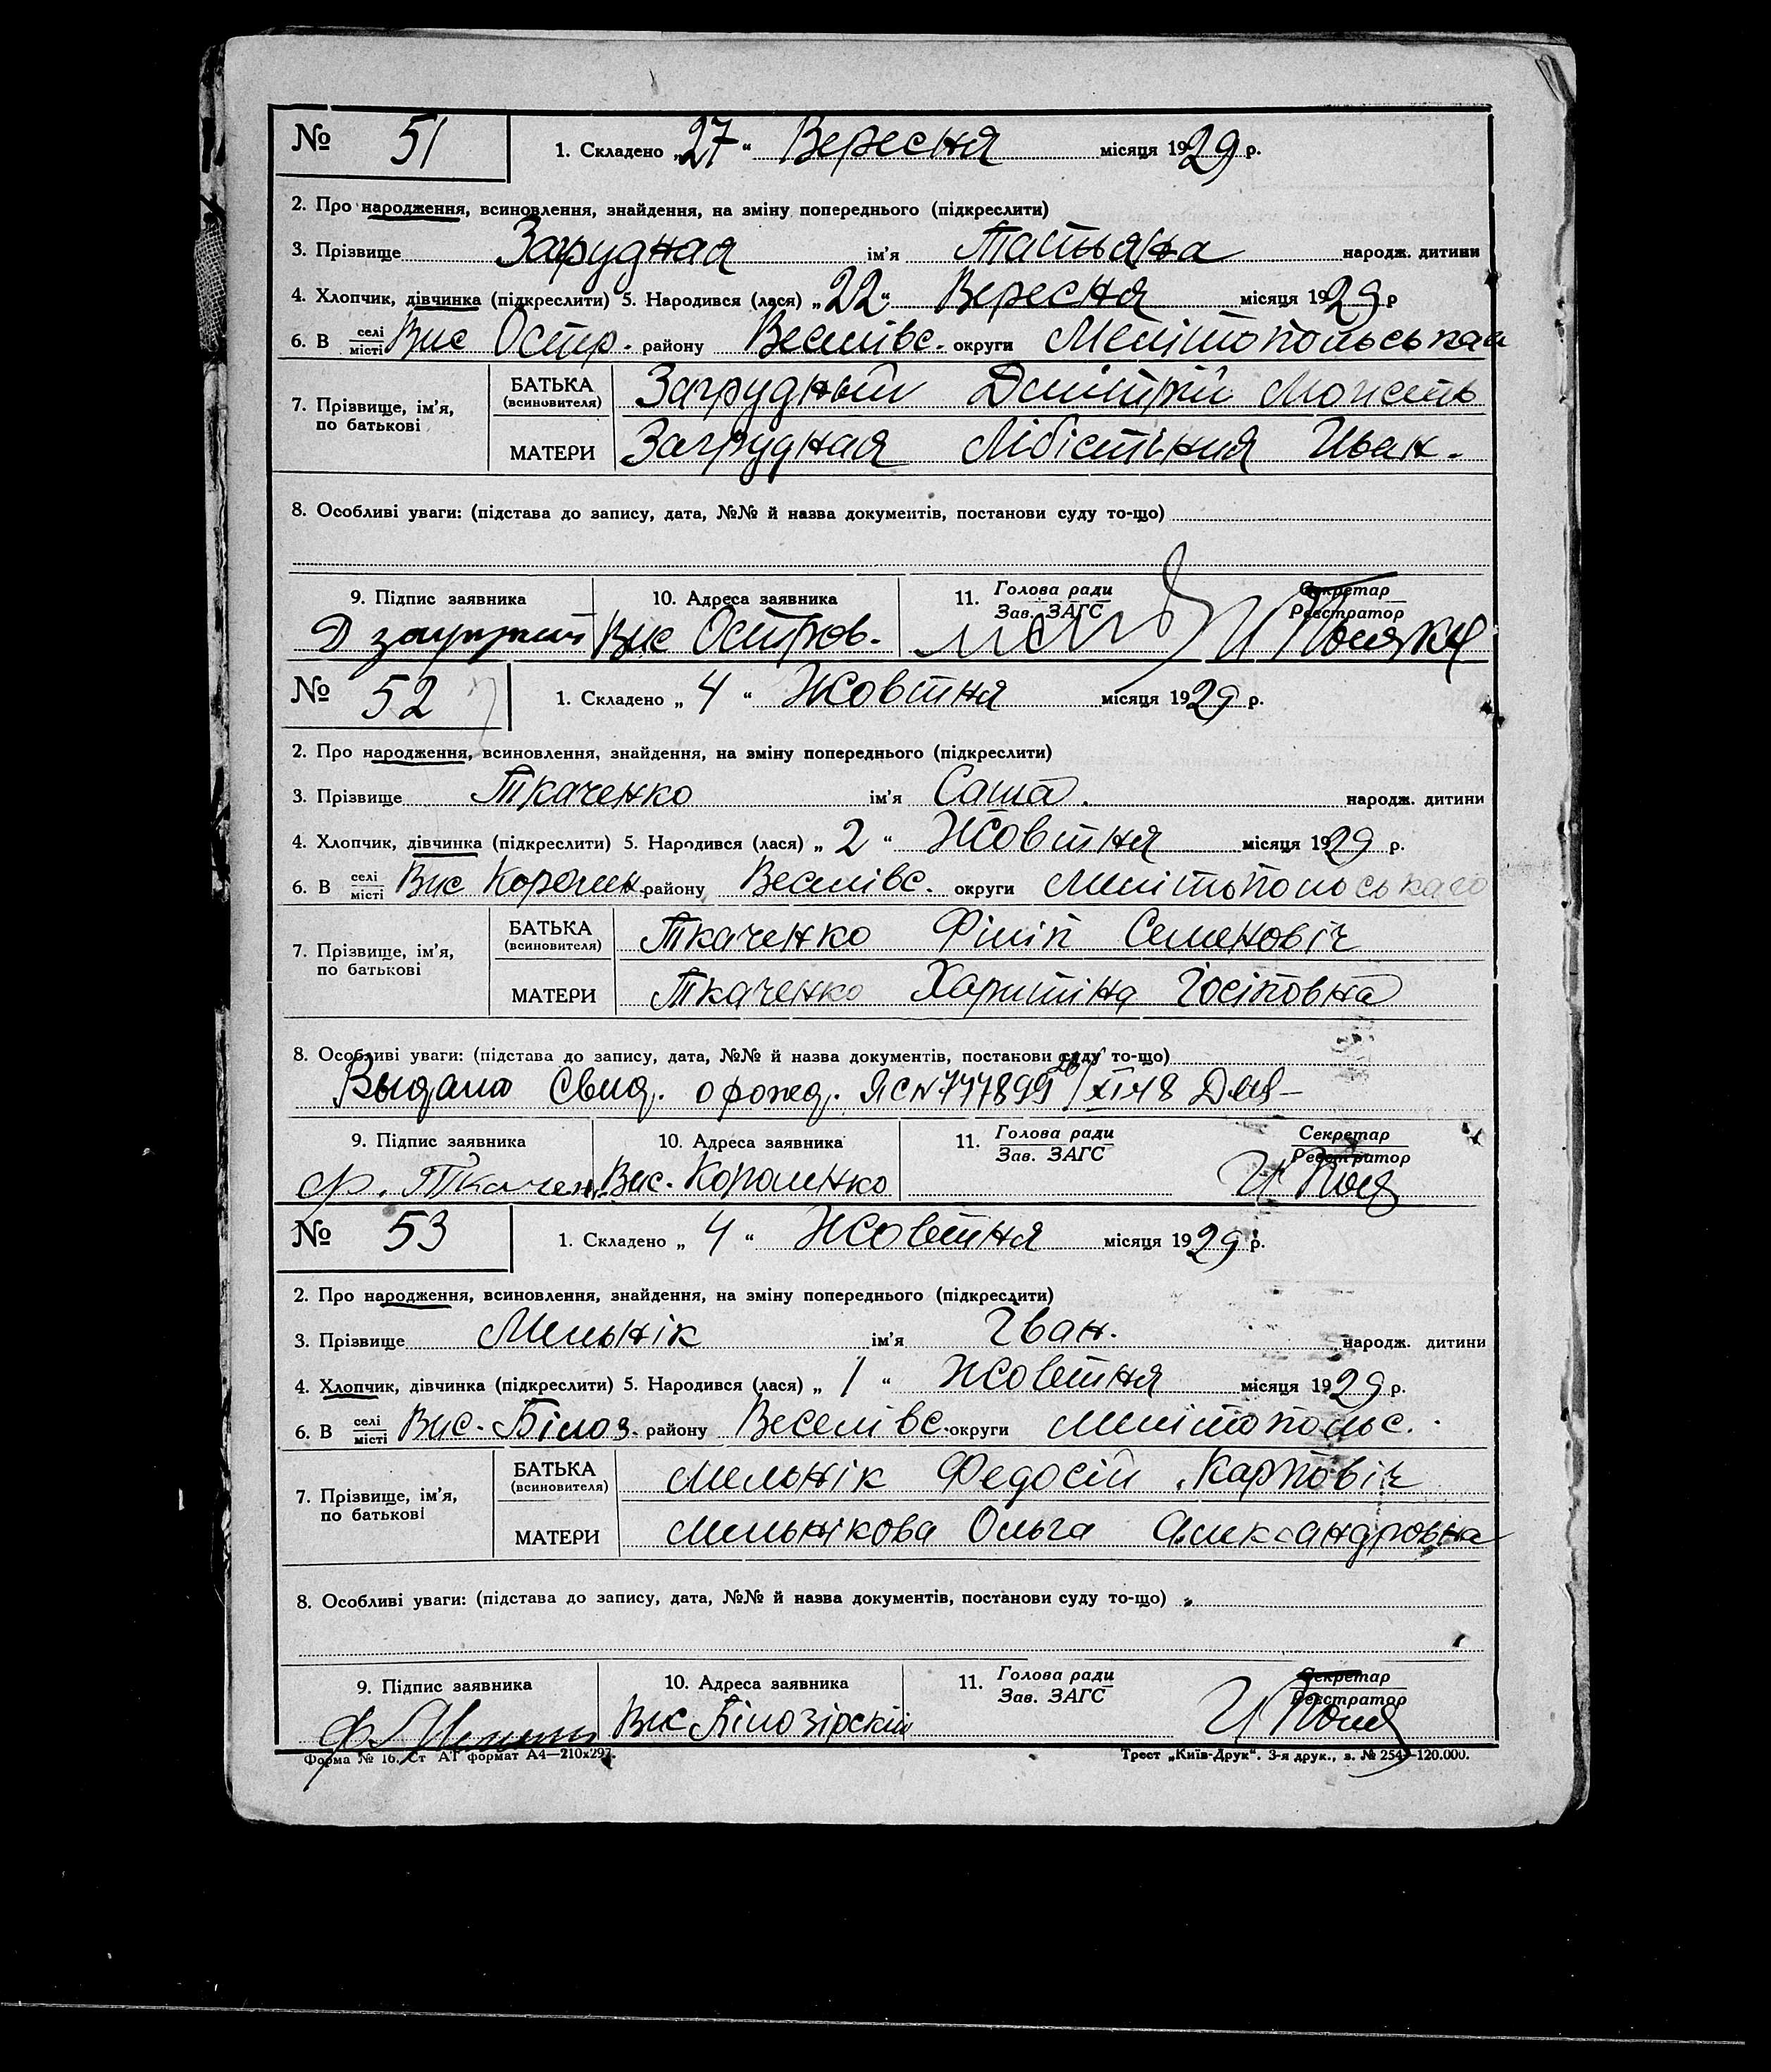 № 51 1. Складено „27“ Вересня місяця 1929 р.
2. Про народження, всиновлення, знайдення, на зміну попереднього (підкреслити)
3. Прізвище Загрудная ім'я Татьяна народж. дитини
4. Хлопчик, дівчинка (підкреслити) 5. Народився (лася) „22“ Вересня місяця 1929 р
6. В селі місті Вис Остр. району Веселівс. округи
7. Прізвище, ім'я, по батькові
БАТЬКА (всиновителя) Загрудный Дмітрій
МАТЕРИ Загрудная Иван.
8. Особливі уваги: (підстава до запису, дата, №№ й назва документів, постанови суду то-що)
9. Підпис заявника 10. Адреса заявника 11. Голова ради Зав. ЗАГС Секретар Реєстратор
Вис Остров.
№ 52 1. Складено „4“ Жовтня місяця 1929 р.
2. Про народження, всиновлення, знайдення, на зміну попереднього (підкреслити)
3. Прізвище Ткаченко ім'я Саша. народж. дитини
4. Хлопчик, дівчинка (підкреслити) 5. Народився (лася) „2“ Жовтня місяця 1929 р.
6. В селі місті Вис Королен району Веселівс. округи Мелітопольського
7. Прізвище, ім'я, по батькові
БАТЬКА (всиновителя) Ткаченко Філіп Семеновіч
МАТЕРИ Ткаченко Харитіна Іосіповна
8. Особливі уваги: (підстава до запису, дата, №№ й назва документів, постанови суду то-що)
Выдано Свид. о рожд. ЯС №
9. Підпис заявника 10. Адреса заявника 11. Голова ради Зав. ЗАГС Секретар Реєстратор
Ф. Ткачен Вис. Короленко
№ 53 1. Складено „4“ Жовтня місяця 1929 р.
2. Про народження, всиновлення, знайдення, на зміну попереднього (підкреслити)
3. Прізвище Мельнік ім'я Іван. народж. дитини
4. Хлопчик, дівчинка (підкреслити) 5. Народився (лася) „1“ Жовтня місяця 1929 р.
6. В селі місті Вис. Білоз. району Веселівс. округи Мелітопольс.
7. Прізвище, ім'я, по батькові
БАТЬКА (всиновителя) Мельнік Федосій Карповіч
МАТЕРИ Мельнікова Ольга Александровна
8. Особливі уваги: (підстава до запису, дата, №№ й назва документів, постанови суду то-що)
9. Підпис заявника 10. Адреса заявника 11. Голова ради Зав. ЗАГС Секретар Реєстратор
Вис Білозірскій
Форма № 16. Ст АТ формат А4—210х297. Трест „Київ-Друк“. 3-я друк., з. № 254—120.000.